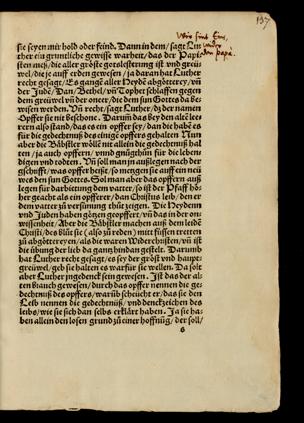 137
Wir sint Eins,
wider
den papst.
sie seyen mir hold oder feind. Dann in dem/ sagt Lut
ther ein gruntliche gewisse warheit/ das der Papi
sten meß/ die aller größte gotslesterung ist vnd greü
wel/ die je auff erden gewesen/ ja daran hat Luther
recht gesagt/ Es gangē aller Heydē abgötterey/ vñ
der Judē/ Dan/ Bethel/ vñ Tophet schlaffen gegen
dem greüwel vñ der onere/ die dem sun Gottes da be
wisen werden. Vñ recht/ sagt Luther/ dz der namen
Opffer sie nit beschone. Darumb das bey den alte lee
rern also stand/ das es ein opffer sey/ dan die habē es
für die gedechtnuß des einigē opffers gehalten Nun
aber die Bäbstler wöllē nit allein die gedechtnuß hal
ten/ ja auch opfferen/ vnnd gnůgthůn für die lebendi
digen vnd todten. Vñ soll man jn außlegen nach der
geschrifft/ was opffer heißt/ so mengen sie auff ein new
es den sun Gottes. Sol man aber das opfferen auß
legen für darbittung dem vatter/ so ist der Pfaff hö
her geacht als ein opfferer/ dan Christus/ leib/ den er
dem vatter zů versünung thůt zeigen. Die Heydenn
vnd Juden haben götzen geopffert/ vñ das in der on
wissenheit/ Aber die Bäbstler machen auß dem leidē
Christi/ des blůt sie (also zů reden) mit füssen tretten
zů abgöttereyen/ als die waren Widerchristen/ vñ ist
die übung der lieb da gantz hindan gesetzt. Darumb
hat Luther recht gesagt/ es sey der gröst vnd haupt
greüwel/ geb sie halten es warfür sie wellen. Da solt
aber Luther yngedenck sein gewesen. Ist das der al
ten brauch gewesen/ durch das opffer nennen die ge
dechtnuß des opffers/ warůb scheücht er/ das sie den
Leib nennen die gedechtnuß/ vnd denckzeichen des
leibs/ wie sie sich dan selbs erklärt haben. Ja sie ha
ben allein den losen grund zů einer hoffnug/ der soll/
6